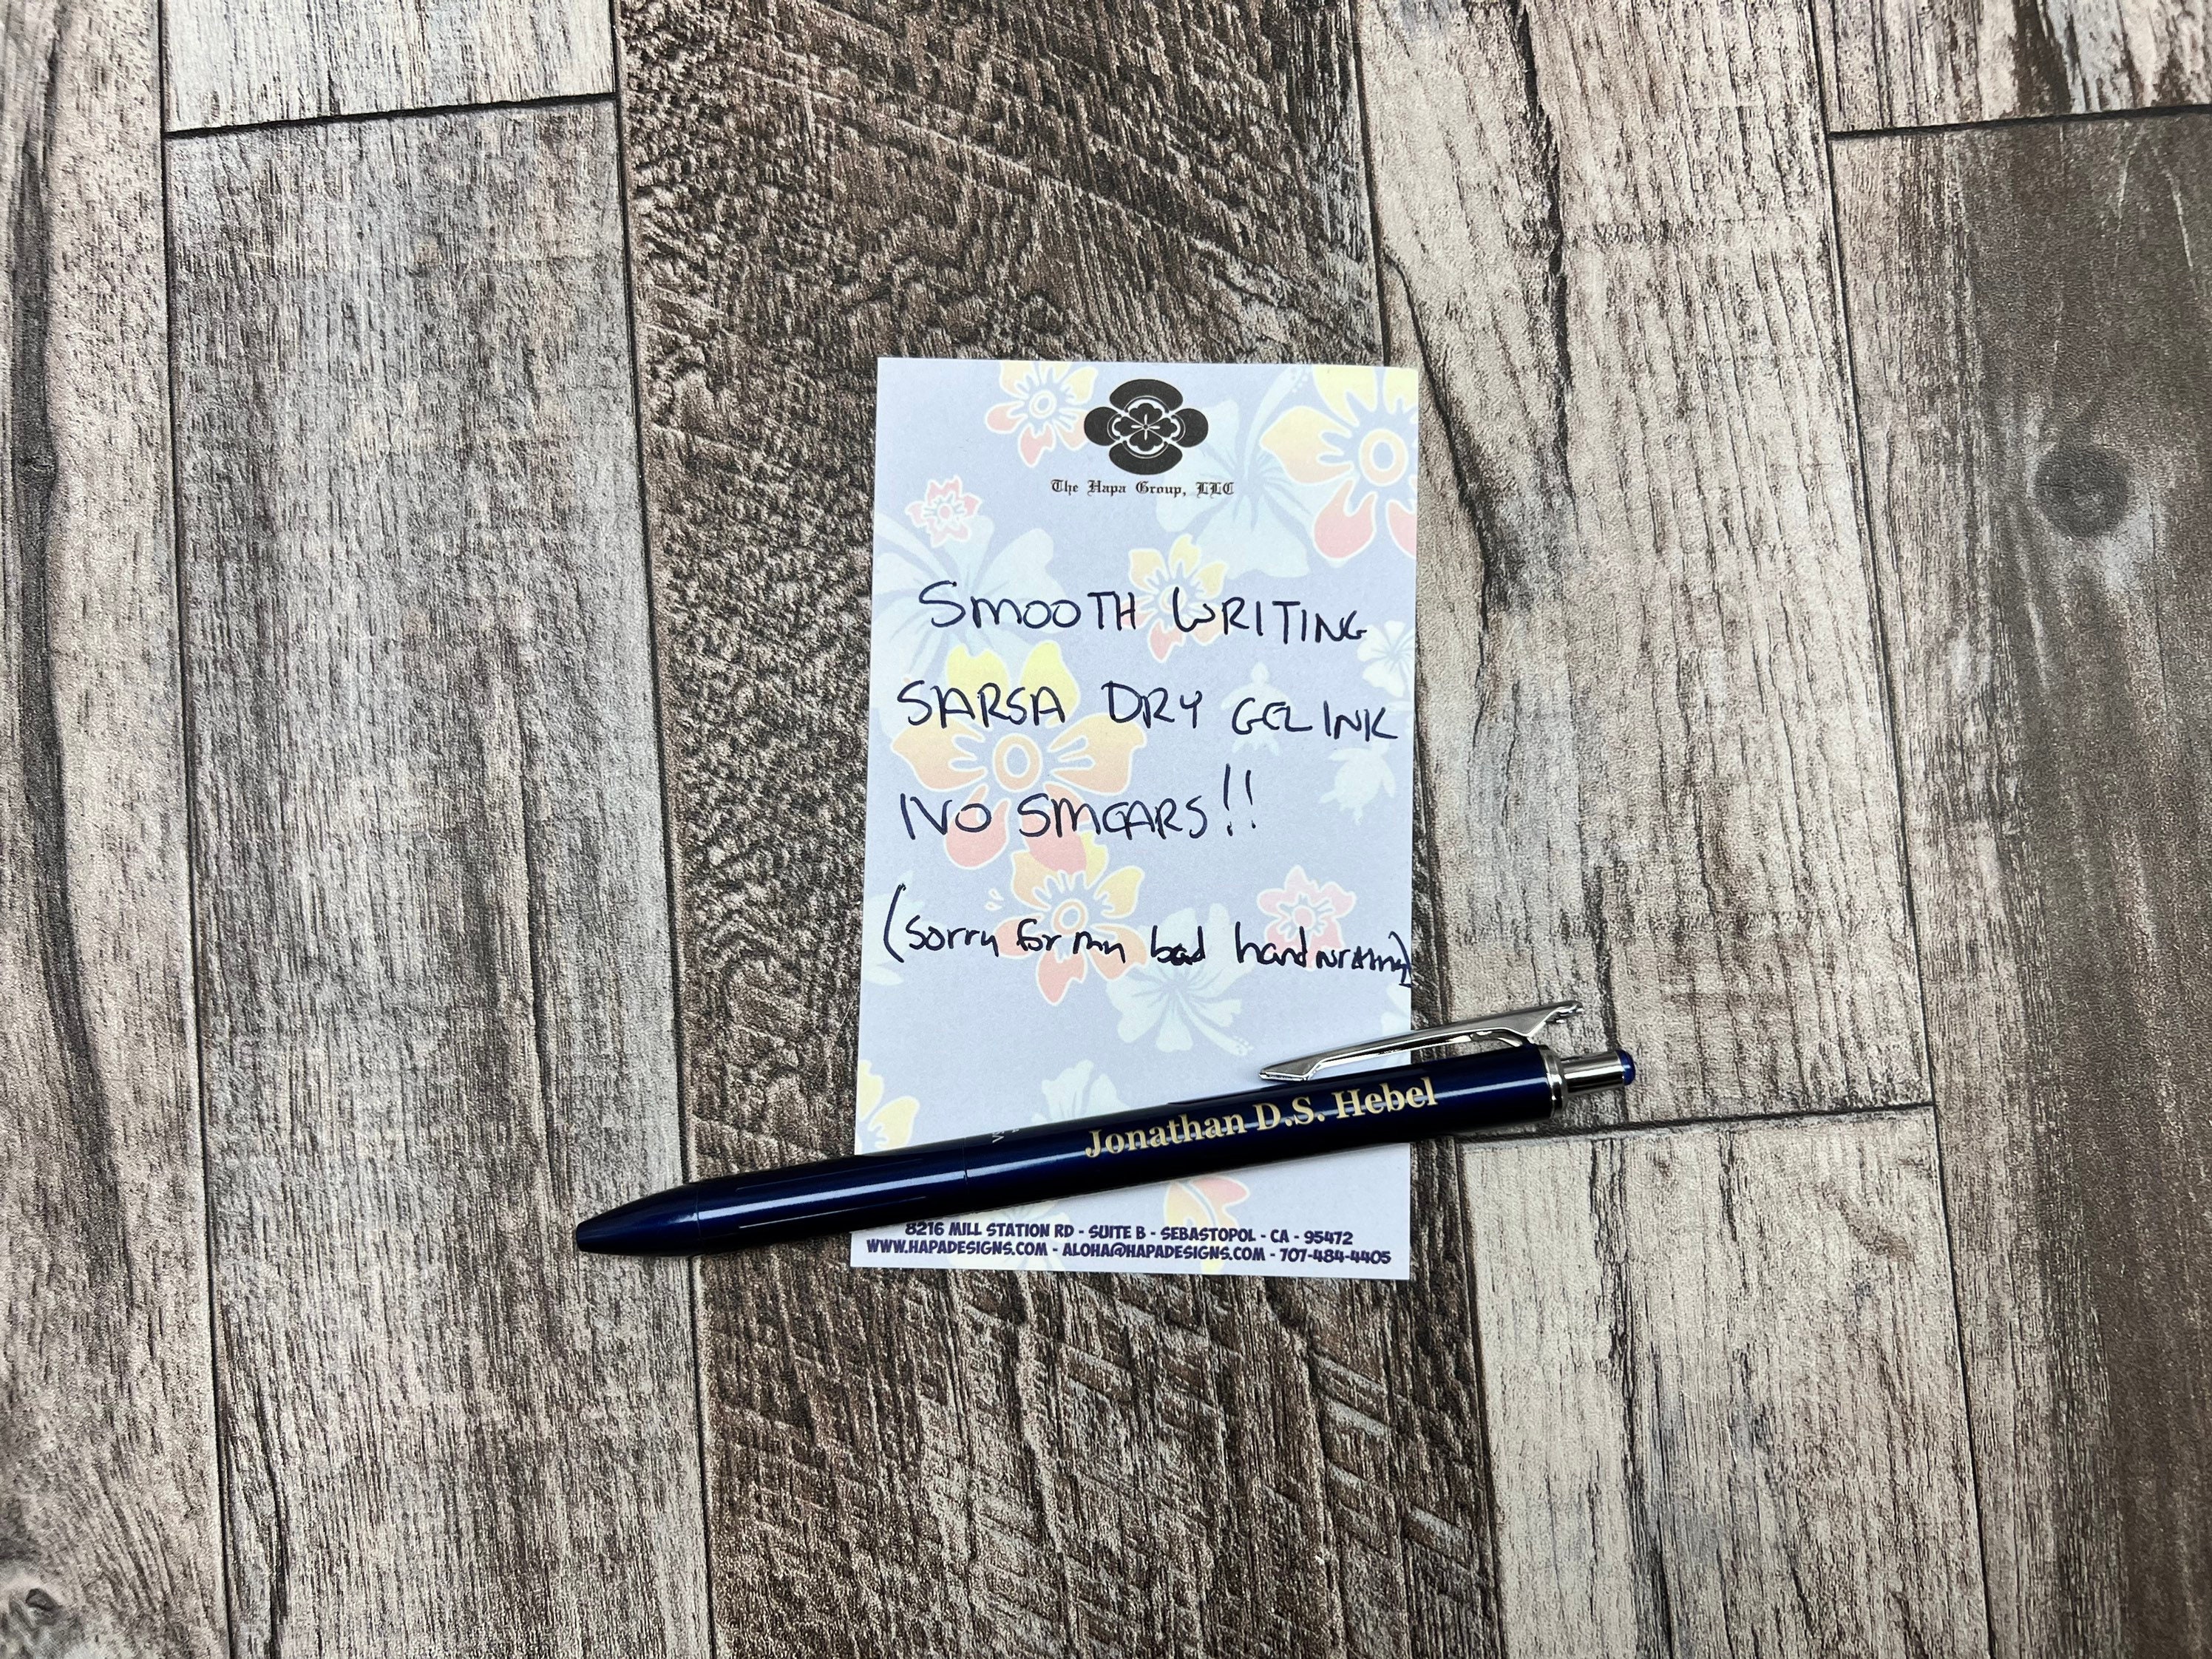 The Hapa Group, LLC
SMOOTH WRITING
SARSA DRY GEL INK
NO SMEARS!!
(sorry for my bad handwriting)
Jonathan D.S. Hebel
8216 MILL STATION RD - SUITE B - SEBASTOPOL - CA - 95472
WWW.HAPADESIGNS.COM - ALOHA@HAPADESIGNS.COM - 707-484-4405